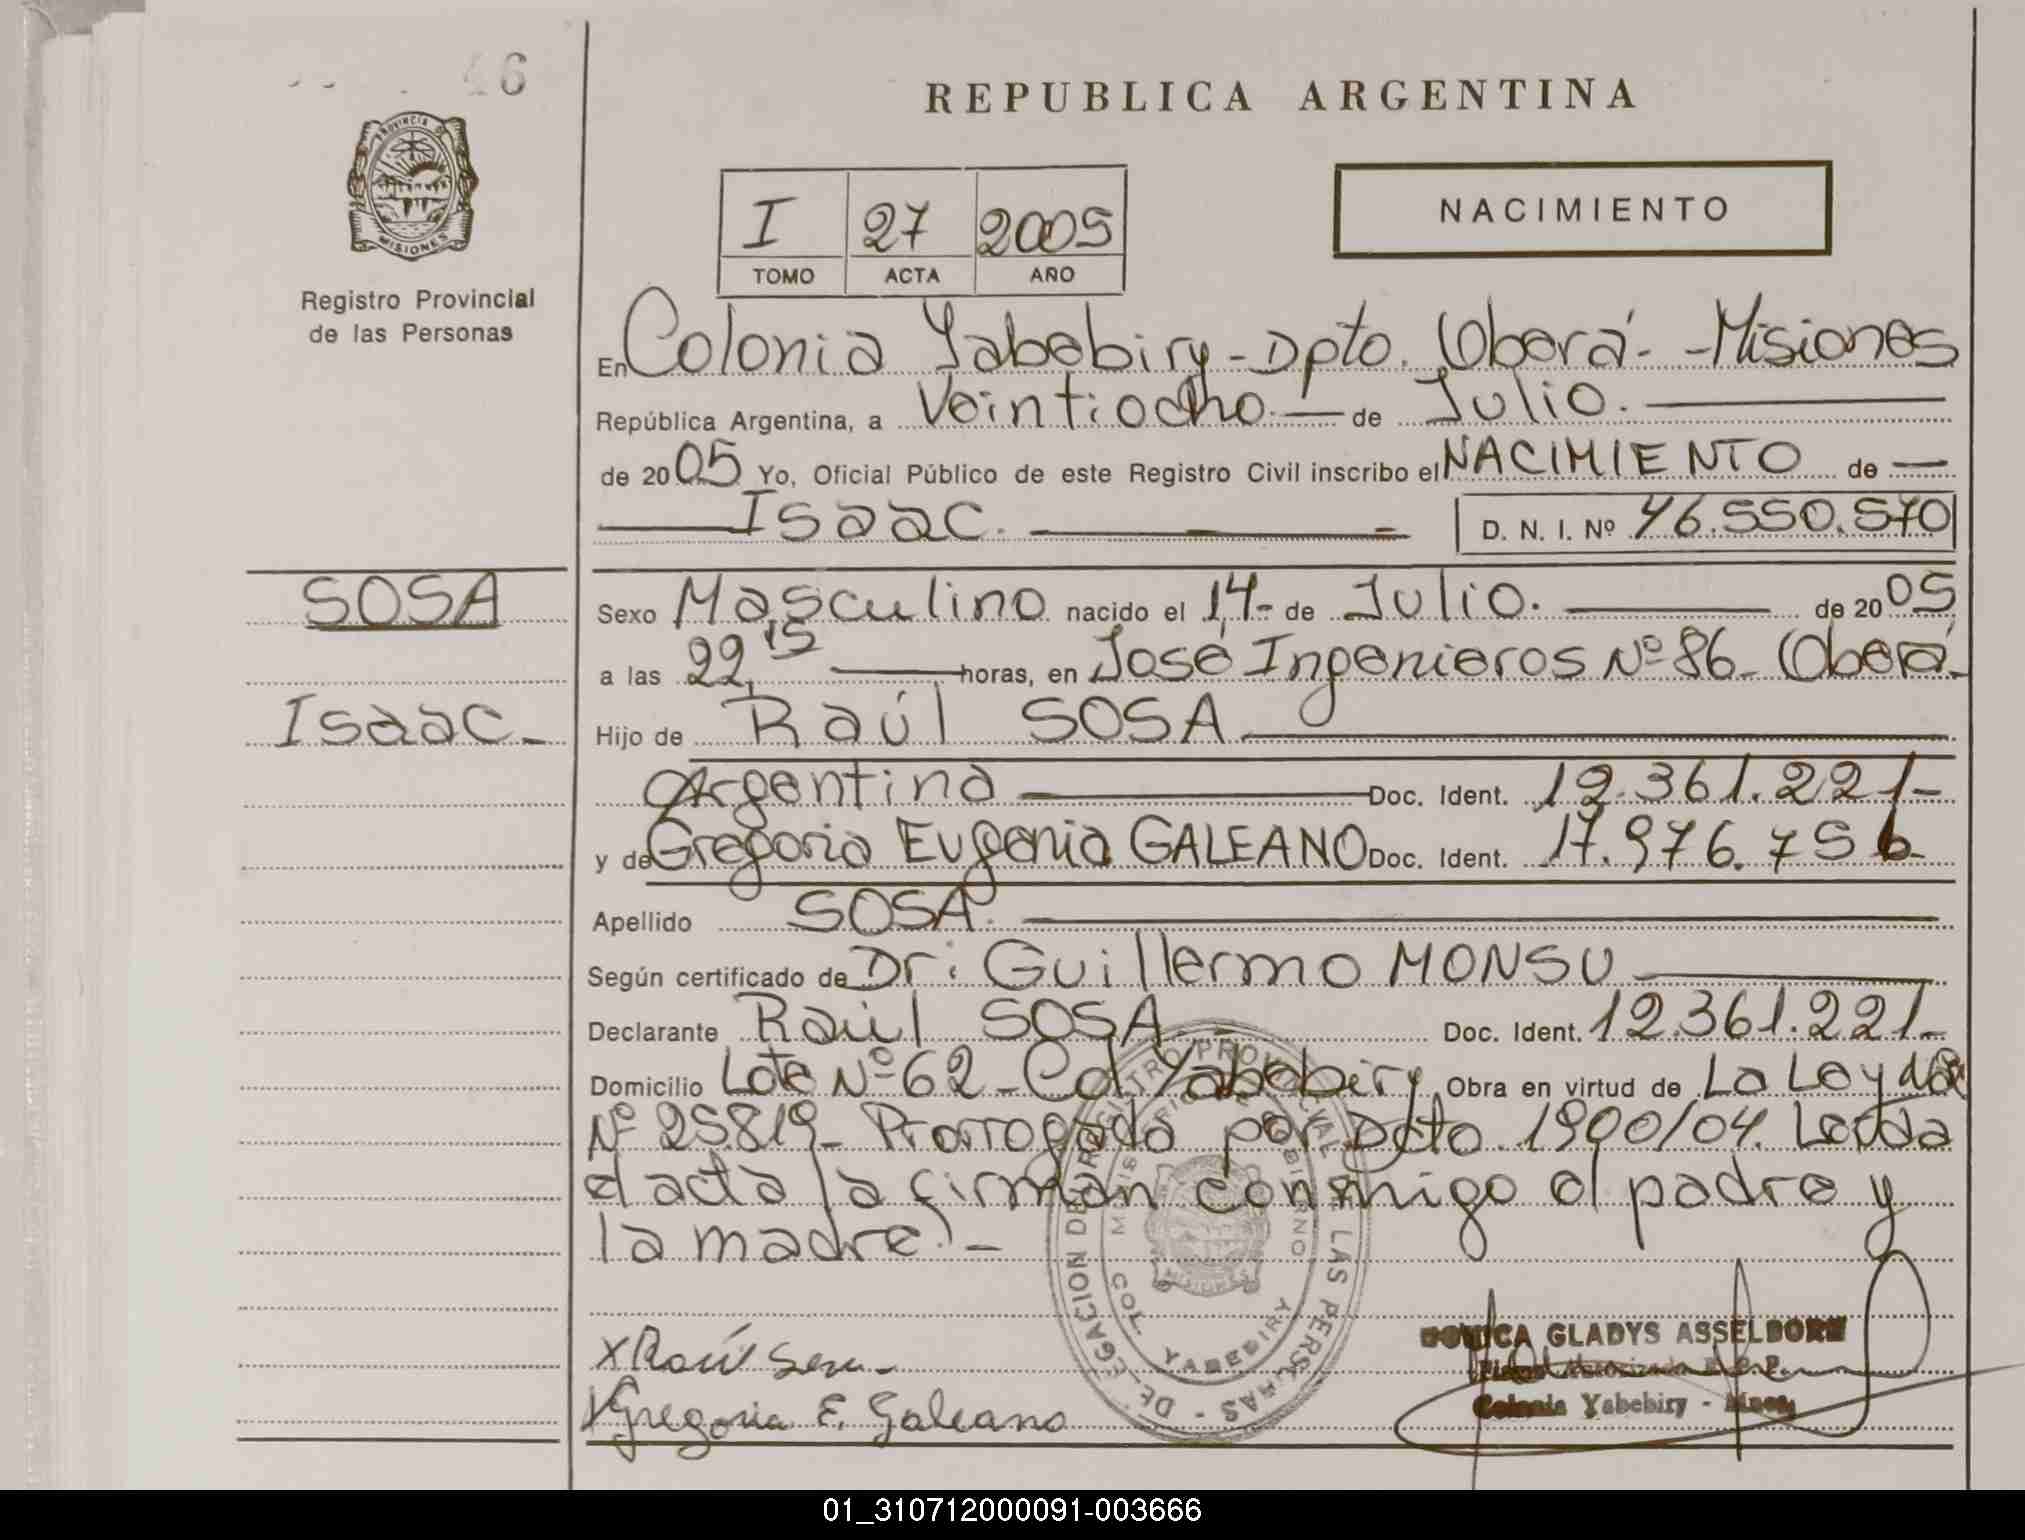 46
REPUBLICA ARGENTINA
PROVINCIA DE
MISIONES
Registro Provincial
de las Personas
I 27 2005
TOMO ACTA AÑO
NACIMIENTO
En Colonia Yabebiry - Dpto. Oberá - - Misiones
República Argentina, a Veintiocho. — de Julio. —
de 2005 Yo, Oficial Público de este Registro Civil inscribo el NACIMIENTO de —
— Isaac. — D. N. I. Nº 46.550.570
SOSA
Isaac -
Sexo Masculino nacido el 14 - de Julio. — de 2005
a las 22,15 — horas, en José Ingenieros Nº 86 - Oberá -
Hijo de Raúl SOSA —
Argentina — Doc. Ident. 12.361.221 -
y de Gregoria Eugenia GALEANO Doc. Ident. 17.976.756
Apellido SOSA. —
Según certificado de Dr. Guillermo MONSU —
Declarante Raúl SOSA - Doc. Ident. 12.361.221 -
Domicilio Lote Nº 62 - Col. Yabebiry Obra en virtud de La Ley Nac
Nº 25.819 - Prorrogada por Dcto. 1900/04. Leída
el acta la firman conmigo el padre y
la madre. -
DELEGACION DE REGISTRO PROVINCIAL DE LAS PERSONAS
COL. YABEBIRY
x Raúl Sosa -
x Gregoria E. Galeano
GLADYS ASSELBORN
Colonia Yabebiry - Mnes.
01_310712000091-003666